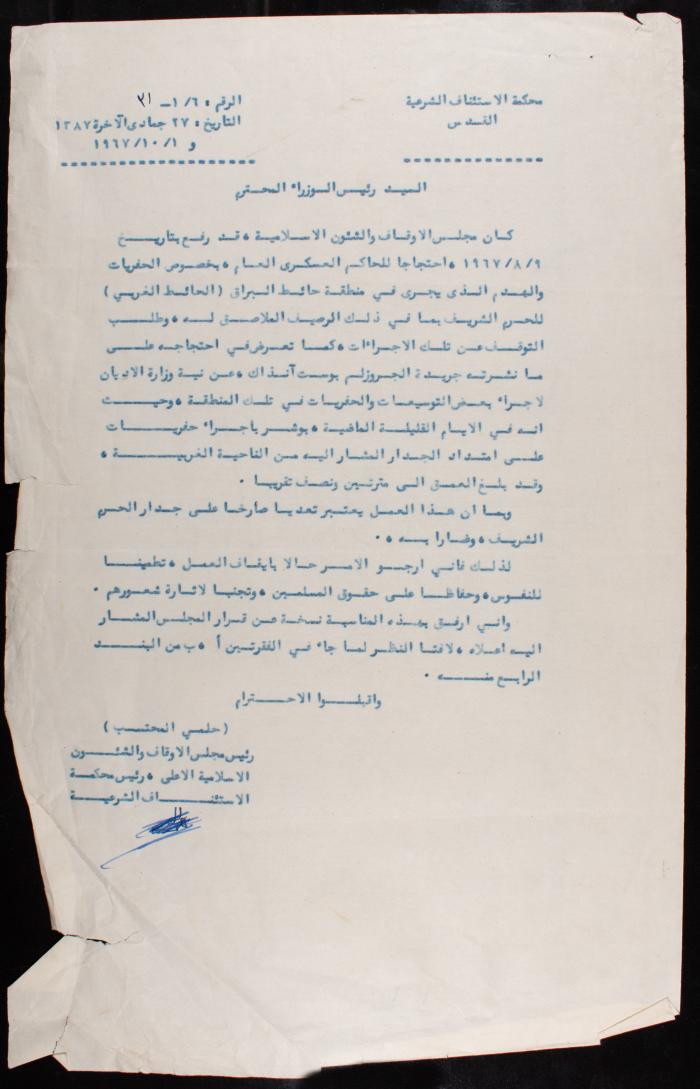 محكمة الاستئناف الشرعية
القدس
الرقم : ١/٦ - ٣١
التاريخ : ٢٧ جمادى الآخرة ١٣٨٧
و ١/١٠/١٩٦٧
السيد رئيس الوزراء المحترم
كان مجلس الاوقاف والشئون الاسلامية ، قد رفع بتاريخ
٩/٨/١٩٦٧ ، احتجاجا للحاكم العسكرى العام ، بخصوص الحفريات
والهدم الذى يجرى في منطقة حائط البراق (الحائط الغربي)
للحرم الشريف بما في ذلك الرصيف الملاصق له ، وطلب
التوقف عن تلك الاجراءات ، كما تعرض في احتجاجه على
ما نشرته جريدة الجروزلم بوست آنذاك ، عن نية وزارة الاديان
لاجراء بعض التوسيعات والحفريات في تلك المنطقة ، وحيث
انه في الايام القليلة الماضية ، بوشر باجراء حفريات
على امتداد الجدار المشار اليه من الناحية الغربية ،
وقد بلغ العمق الى مترين ونصف تقريبا .
وبما ان هذا العمل يعتبر تعديا صارخا على جدار الحرم
الشريف ، وضارا به ، .
لذلك فاني ارجو الامر حالا بايقاف العمل ، تطمينا
للنفوس ، وحفاظا على حقوق المسلمين ، وتجنبا لاثارة شعورهم .
واني ارفق بهذه المناسبة نسخة عن قرار المجلس المشار
اليه اعلاه ، لافتا النظر لما جاء في الفقرتين أ ، ب من البند
الرابع منه .
واقبلوا الاحترام
(حلمي المحتسب)
رئيس مجلس الاوقاف والشئون
الاسلامية الاعلى ، رئيس محكمة
الاستئناف الشرعية